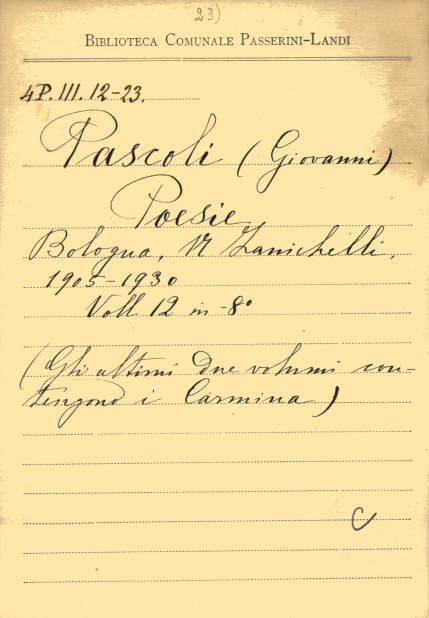 23)
BIBLIOTECA COMUNALE PASSERINI-LANDI
4P.III.12-23.
Pascoli (Giovanni)
Poesie
Bologna, N Zanichelli,
1905-1930
Voll 12 in-8°
(Gli ultimi due volumi con-
tengono i Carmina)
C